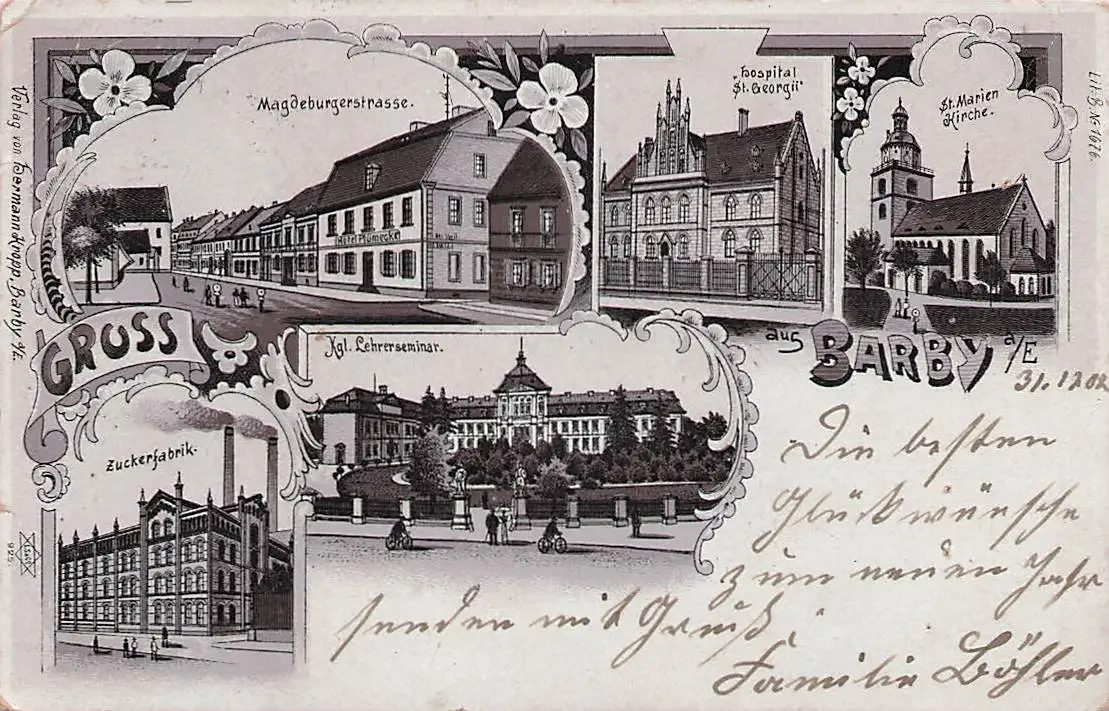 Magdeburgerstrasse.
Hotel Plumecke
Hospital
"St. Georgii"
St. Marien
Kirche.
GRUSS
aus BARBY a/E
Kgl. Lehrerseminar.
Zuckerfabrik.
Verlag von Hermann Knopp, Barby a/E.
925.
31. 12 02
Die besten
Glückwünsche
zum neuen Jahr
senden mit Gruß
Familie Böhler